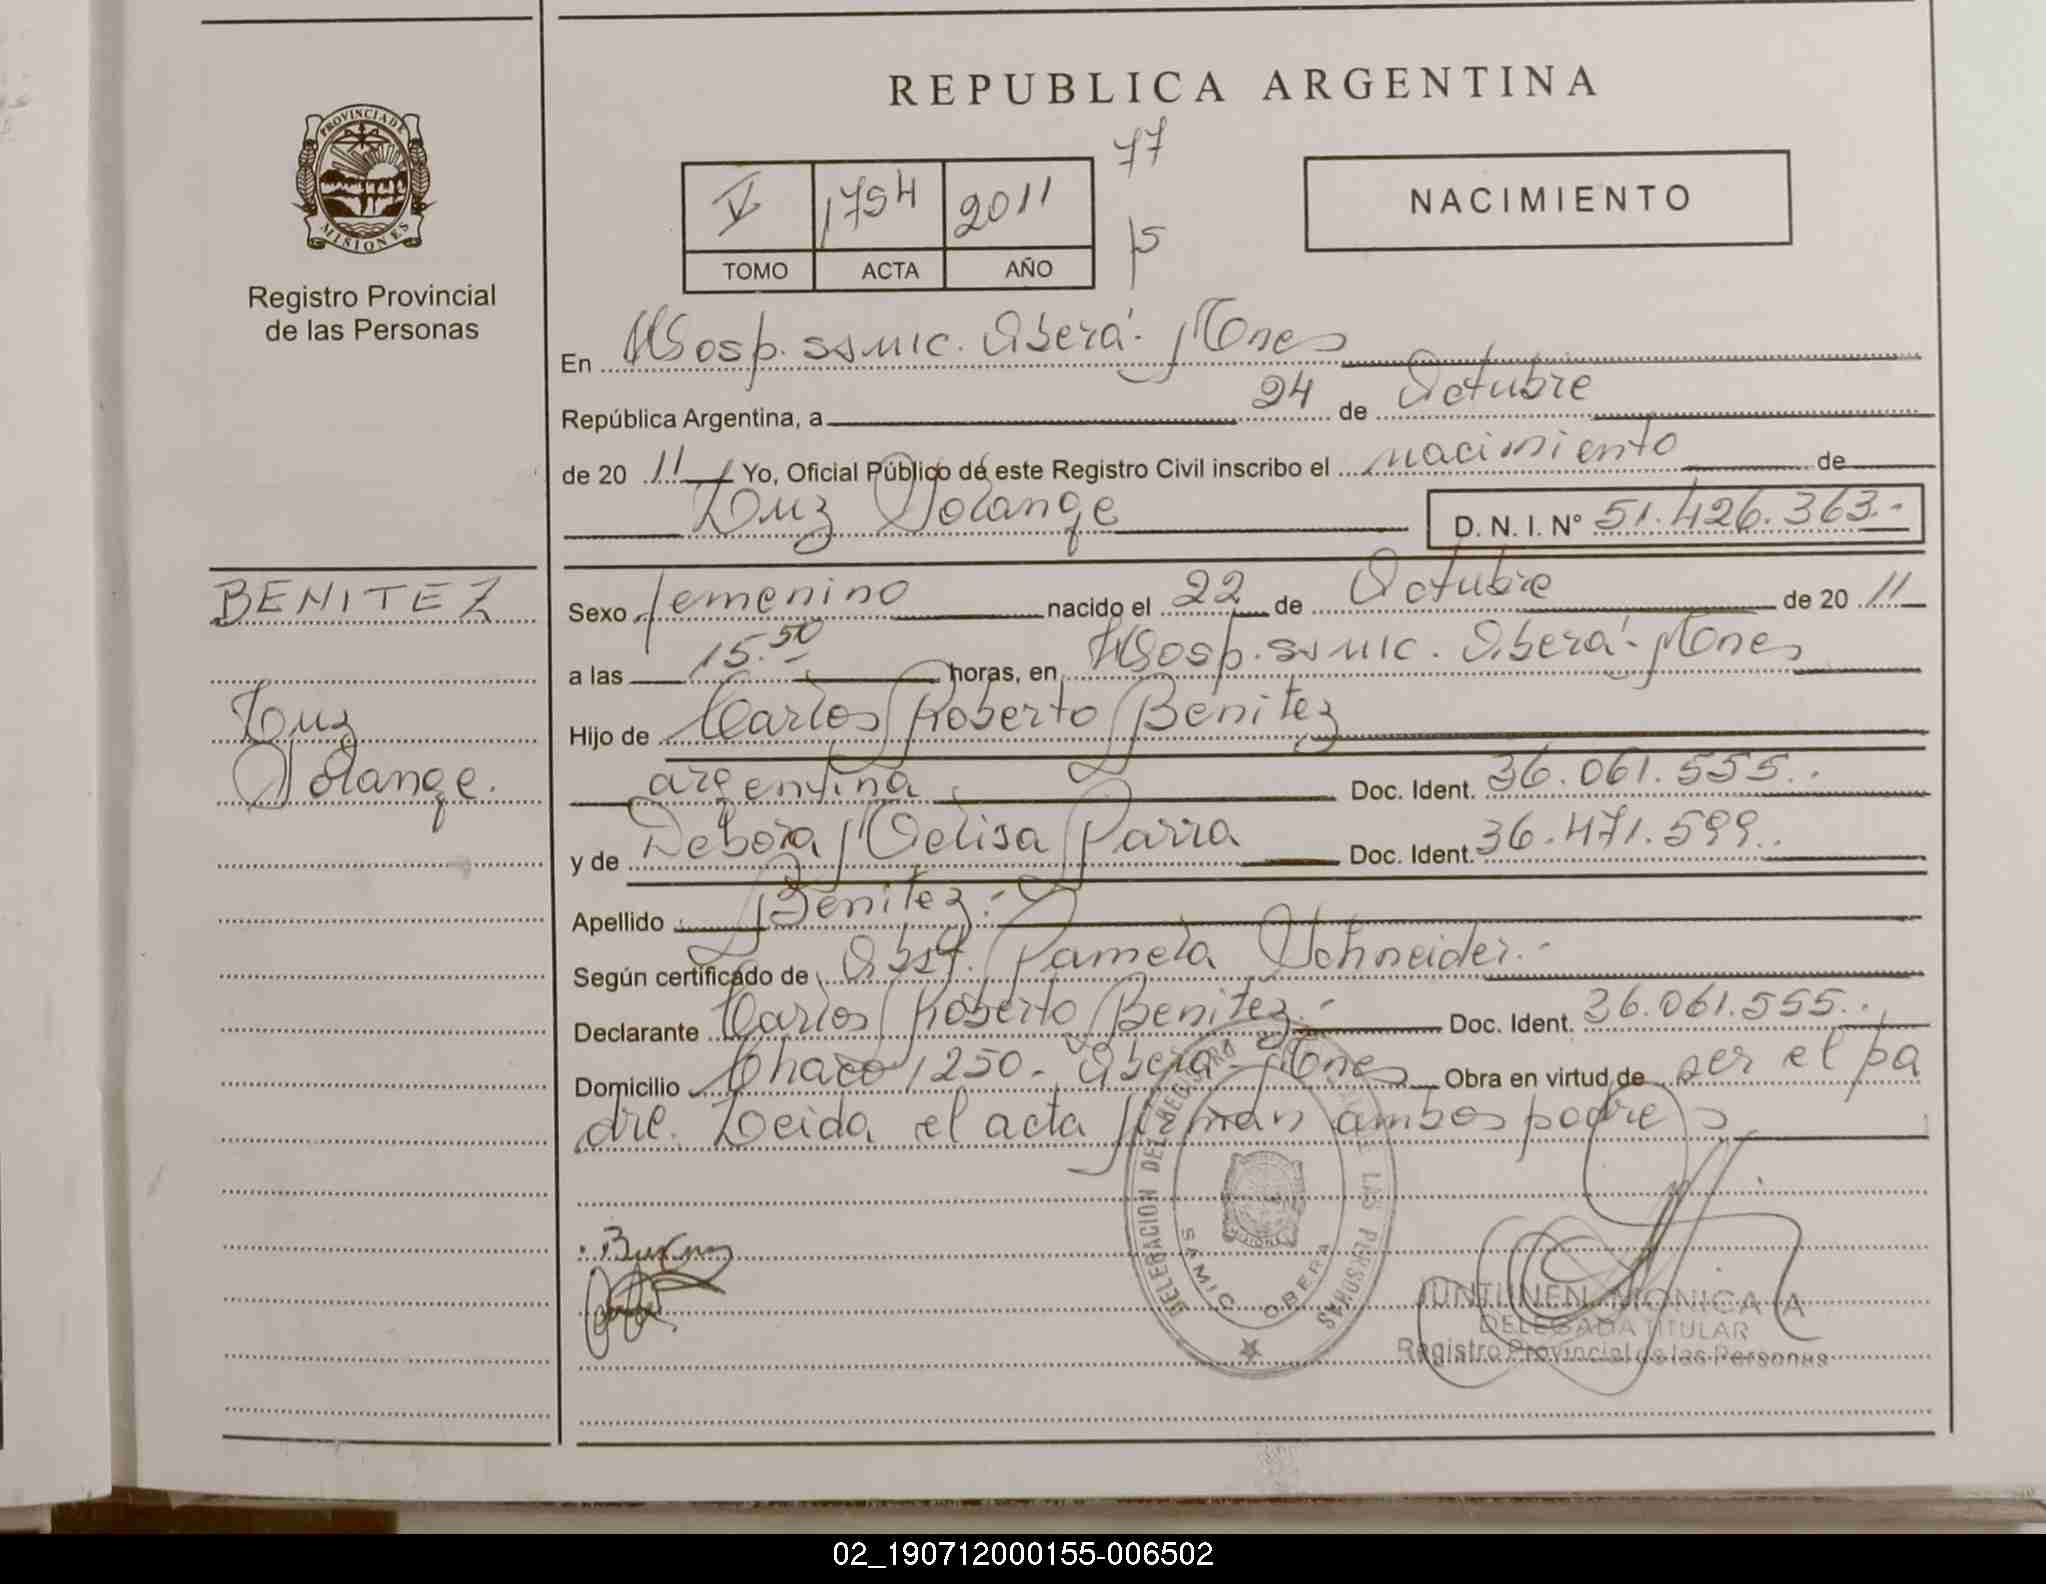 REPUBLICA ARGENTINA
PROVINCIA DE MISIONES
Registro Provincial
de las Personas
77
15
V 1794 2011
TOMO ACTA AÑO
NACIMIENTO
En Hosp. ssmic. Oberá - Mones
República Argentina, a 24 de Octubre
de 20 11 Yo, Oficial Público de este Registro Civil inscribo el nacimiento de
Luz Solange D. N. I. N° 51.426.363.-
BENITEZ
Luz
Solange.
Sexo femenino nacido el 22 de Octubre de 20 11
a las 15.50 horas, en Hosp. ssmic. Oberá - Mones
Hijo de Carlos Roberto Benitez
argentina Doc. Ident. 36.061.555..
y de Debora Melisa Parra Doc. Ident. 36.471.599..
Apellido Benitez.-
Según certificado de Obst. Pamela Schneider.-
Declarante Carlos Roberto Benitez.- Doc. Ident. 36.061.555..
Domicilio Chaco 1250 - Oberá - Mones Obra en virtud de ser el pa
dre. Leida el acta firman ambos padres
DELEGACION DEL REGISTRO DE LAS PERSONAS
SAMIC OBERA
JUNTUNEN MONICA A
DELEGADA TITULAR
Registro Provincial de las Personas
02_190712000155-006502